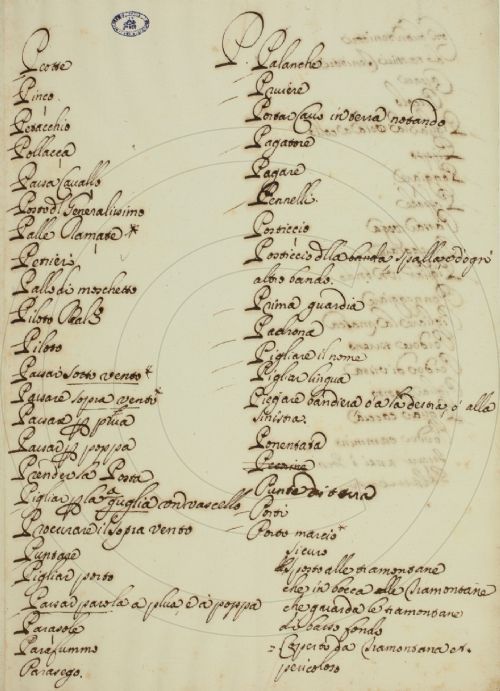 Pcotte
Pinco.
Petacchio
Pollacca
Passa Cavallo
Posto di Generalissimo
Palle Ramate *
Petrieri
Palle di moschetto
Piloto Reale
Piloto
Passar sotto vento *
Passare sopra vento *
Passar p plua
Passar p poppa
Prender la Posta
Pigliar p la guglia un vascello
Procurare il sopra vento
Puntare
Pigliar porto
Passar parola a plua, e à poppa
Parasole
Parafummo
Parasego.
P. Palanche
Puviere
Portar Cavo in terra notando
Pagatore
Pagare
Pennelli.
Porticcio
Posticcio dlla banda spalla, ed ogni
altro bando.
Prima guardia
Padrona
Pigliare il nome
Pigliar lingua
Piegare bandiera ò a la destra, ò alla
sinistra.
Ponentata
Punte di terra
Porti
Porto marcio *
sicuro
sporto alle tramontane
che in bocca alle tramontane
che guarda le tramontane
di basso fondo
= Coperto da tramontana et
pericoloso